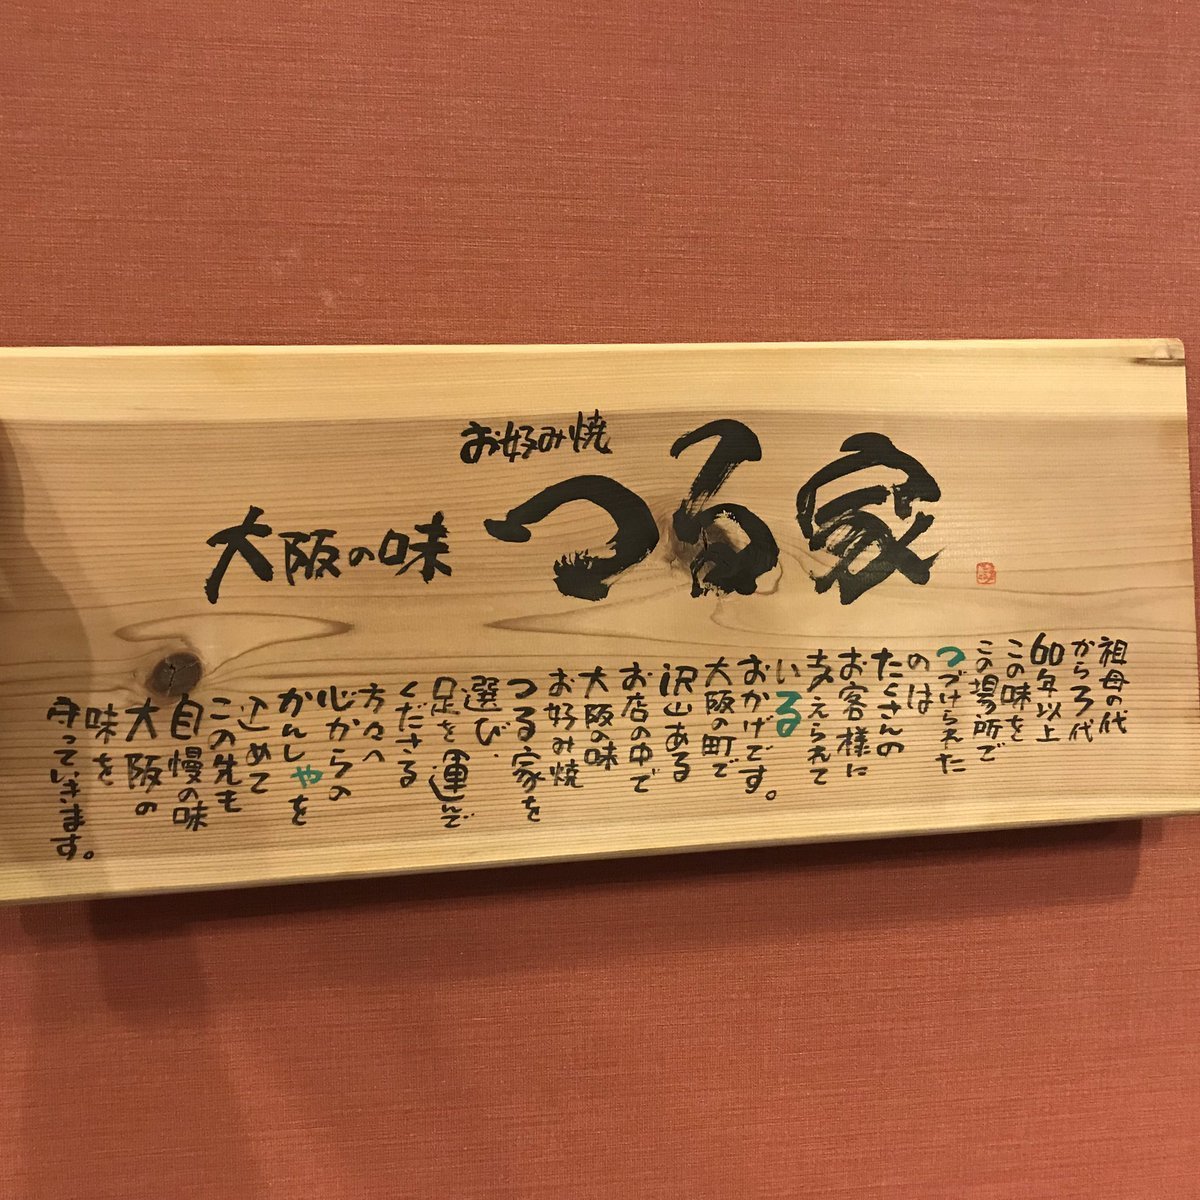 お好み焼
つる家
大阪の味
祖母の代
から3代
60年以上
この味を
この場所で
つづけられた
のは
たくさんの
お客様に
支えられて
いる
おかげです。
大阪の町で
沢山ある
お店の中で
大阪の味
お好み焼
つる家を
選び、
足を運んで
くださる
方々へ
心からの
かんしゃを
込めて
この先も
自慢の味
大阪の
味を
守っていきます。